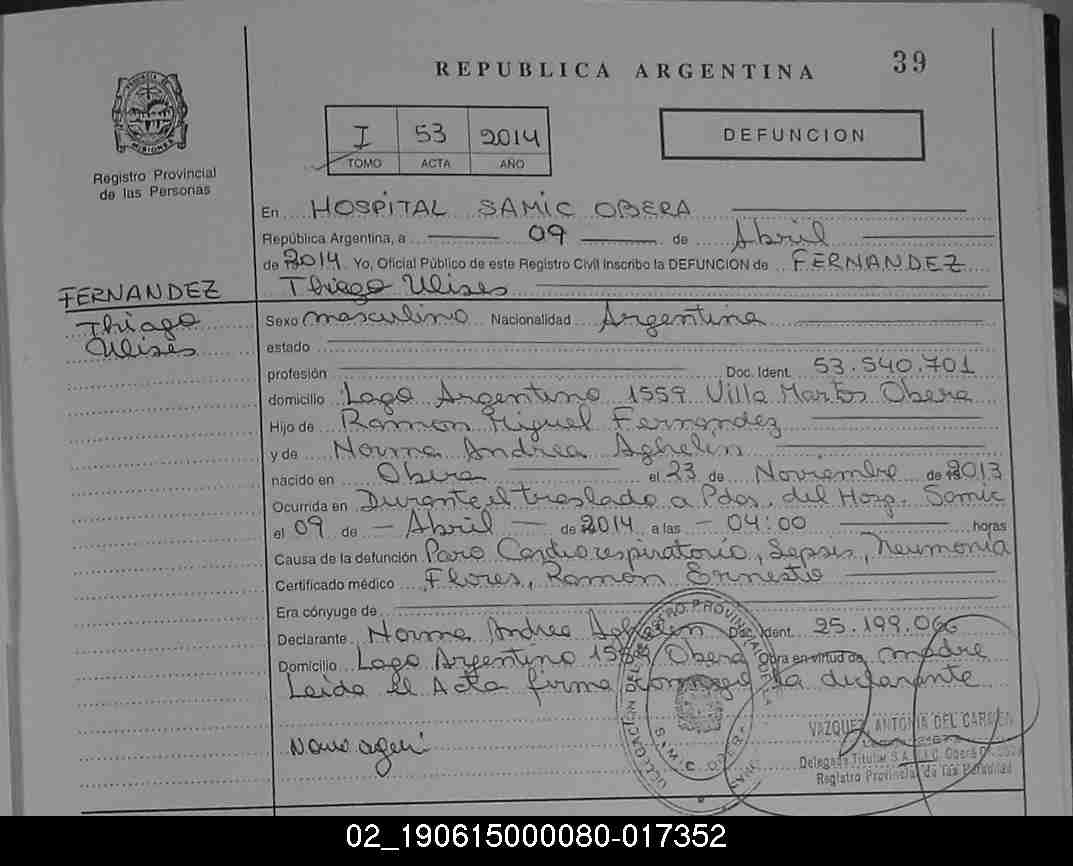 REPUBLICA ARGENTINA
39
I 53 2014
TOMO ACTA AÑO
DEFUNCION
MISIONES
Registro Provincial
de las Personas
En HOSPITAL SAMIC OBERA
República Argentina, a 09 de Abril
de 2014 Yo, Oficial Público de este Registro Civil inscribo la DEFUNCION de FERNANDEZ
Thiago Ulises
FERNANDEZ
Thiago
Ulises
Sexo masculino Nacionalidad Argentina
estado
profesión Doc. Ident. 53.540.701
domicilio Lago Argentino 1559 Villa Martos Obera
Hijo de Ramon Miguel Fernandez
y de Norma Andrea Aghelin
nacido en Obera el 23 de Noviembre de 2013
Ocurrida en Durante el traslado a Pdas. del Hosp. Samic
el 09 de - Abril - de 2014 a las - 04:00 horas
Causa de la defunción Paro Cardiorespiratorio, Sepsis, Neumonía
Certificado médico Flores, Ramon Ernesto
Era cónyuge de
Declarante Norma Andrea Aghelin Doc. Ident. 25.199.066
Domicilio Lago Argentino Obera Obra en virtud de madre
Leida el Acta firma conmigo la declarante
VAZQUEZ, ANTONIA DEL CARMEN
Delegada Titular S.A.M.I.C. Oberá
Registro Provincial de las Personas
02_190615000080-017352